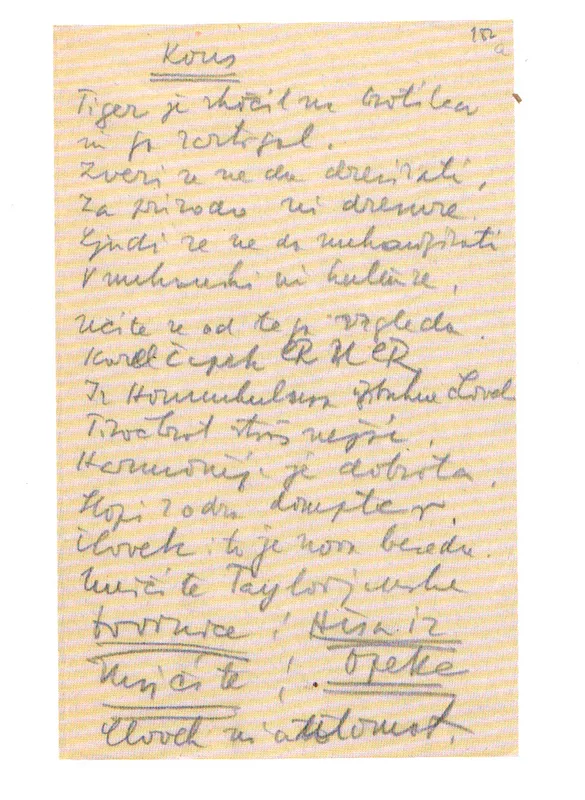 152
a
Kons
Tiger je skočil na krotilca
in ga raztrgal.
Zveri se ne da dresirati,
Za prirodo ni dresure.
Ljudi se ne da mehanizirati
V mehaniki ni kulture.
Učite se od tega vzgleda.
Karel Čapek
Iz Homunkulusa izbruhne človek
Tisočkrat
Harmonija je dobrota.
Človek: to je nova beseda.
Uničite Taylorjanske
tvornice! Hiša iz
Uničite! Opeke
Človek ni avtomat.